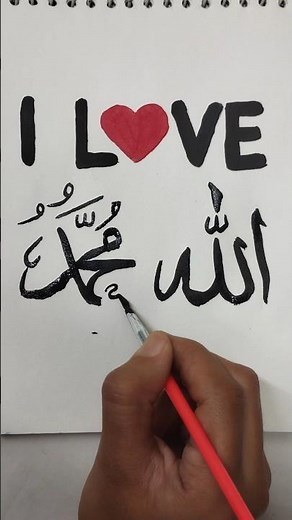 I LOVE
الله محمد